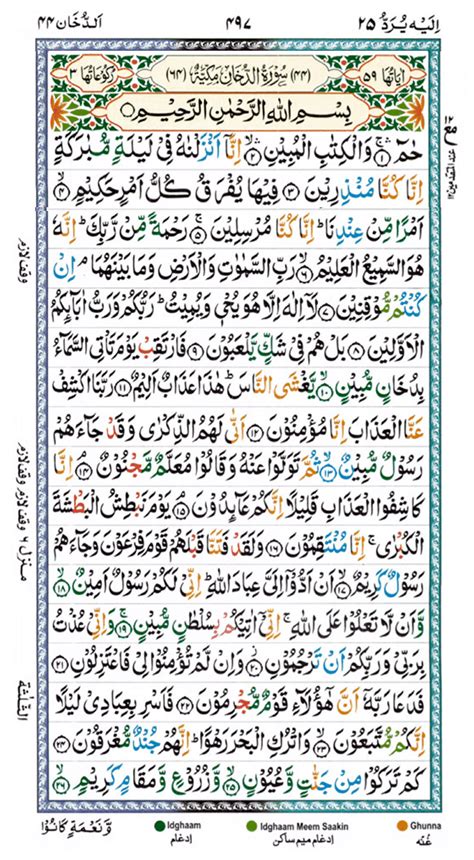 اِلَیْهِ یُرَدُّ ٢٥ ۴۹۷ اَلدُّخَان ۴۴
اٰیَاتُهَا ۵۹ (۴۴) سُوْرَةُ الدُّخَانِ مَكِّیَّةٌ (۶۴) رُكُوْعَاتُهَا ۳
بِسْمِ اللّٰهِ الرَّحْمٰنِ الرَّحِیْمِ
حٰمٓ ۚ‏﴿۱﴾ وَالْكِتٰبِ الْمُبِیْنِ ۙ‏﴿۲﴾ اِنَّاۤ اَنْزَلْنٰهُ فِیْ لَیْلَةٍ مُّبٰرَكَةٍ
اِنَّا كُنَّا مُنْذِرِیْنَ ﴿۳﴾ فِیْهَا یُفْرَقُ كُلُّ اَمْرٍ حَكِیْمٍ ۙ‏﴿۴﴾
اَمْرًا مِّنْ عِنْدِنَا ؕ اِنَّا كُنَّا مُرْسِلِیْنَ ۚ‏﴿۵﴾ رَحْمَةً مِّنْ رَّبِّكَ ؕ اِنَّهٗ
هُوَ السَّمِیْعُ الْعَلِیْمُ ۙ‏﴿۶﴾ رَبِّ السَّمٰوٰتِ وَالْاَرْضِ وَمَا بَیْنَهُمَا ۘ اِنْ
كُنْتُمْ مُّوْقِنِیْنَ ﴿۷﴾ لَاۤ اِلٰهَ اِلَّا هُوَ یُحْیٖ وَیُمِیْتُ ؕ رَبُّكُمْ وَرَبُّ اٰبَآىِٕكُمُ
الْاَوَّلِیْنَ ﴿۸﴾ بَلْ هُمْ فِیْ شَكٍّ یَّلْعَبُوْنَ ﴿۹﴾ فَارْتَقِبْ یَوْمَ تَاْتِی السَّمَآءُ
بِدُخَانٍ مُّبِیْنٍ ۙ‏﴿۱۰﴾ یَّغْشَی النَّاسَ ؕ هٰذَا عَذَابٌ اَلِیْمٌ ﴿۱۱﴾ رَبَّنَا اكْشِفْ
عَنَّا الْعَذَابَ اِنَّا مُؤْمِنُوْنَ ﴿۱۲﴾ اَنّٰی لَهُمُ الذِّكْرٰی وَقَدْ جَآءَهُمْ
رَسُوْلٌ مُّبِیْنٌ ۙ‏﴿۱۳﴾ ثُمَّ تَوَلَّوْا عَنْهُ وَقَالُوْا مُعَلَّمٌ مَّجْنُوْنٌ ۘ‏﴿۱۴﴾ اِنَّا
كَاشِفُوا الْعَذَابِ قَلِیْلًا اِنَّكُمْ عَآىِٕدُوْنَ ۘ‏﴿۱۵﴾ یَوْمَ نَبْطِشُ الْبَطْشَةَ
الْكُبْرٰی ۚ اِنَّا مُنْتَقِمُوْنَ ﴿۱۶﴾ وَلَقَدْ فَتَنَّا قَبْلَهُمْ قَوْمَ فِرْعَوْنَ وَجَآءَهُمْ
رَسُوْلٌ كَرِیْمٌ ۙ‏﴿۱۷﴾ اَنْ اَدُّوْۤا اِلَیَّ عِبَادَ اللّٰهِ ؕ اِنِّیْ لَكُمْ رَسُوْلٌ اَمِیْنٌ ۙ‏﴿۱۸﴾
وَّاَنْ لَّا تَعْلُوْا عَلَی اللّٰهِ ۚ اِنِّیْۤ اٰتِیْكُمْ بِسُلْطٰنٍ مُّبِیْنٍ ۚ‏﴿۱۹﴾ وَاِنِّیْ عُذْتُ
بِرَبِّیْ وَرَبِّكُمْ اَنْ تَرْجُمُوْنِ ۚ‏﴿۲۰﴾ وَاِنْ لَّمْ تُؤْمِنُوْا لِیْ فَاعْتَزِلُوْنِ ﴿۲۱﴾
فَدَعَا رَبَّهٗۤ اَنَّ هٰۤؤُلَآءِ قَوْمٌ مُّجْرِمُوْنَ ﴿۲۲﴾ فَاَسْرِ بِعِبَادِیْ لَیْلًا
اِنَّكُمْ مُّتَّبَعُوْنَ ۙ‏﴿۲۳﴾ وَاتْرُكِ الْبَحْرَ رَهْوًا ؕ اِنَّهُمْ جُنْدٌ مُّغْرَقُوْنَ ﴿۲۴﴾
كَمْ تَرَكُوْا مِنْ جَنّٰتٍ وَّعُیُوْنٍ ۙ‏﴿۲۵﴾ وَّزُرُوْعٍ وَّمَقَامٍ كَرِیْمٍ ۙ‏﴿۲۶﴾
وقف لازم
وقف لازم وقف لازم
منزل ۶
الثلٰثة
وَّنَعْمَةٍ كَانُوْا
Idghaam
ادغام
Idghaam Meem Saakin
ادغام میم ساکن
Ghunna
غُنّہ